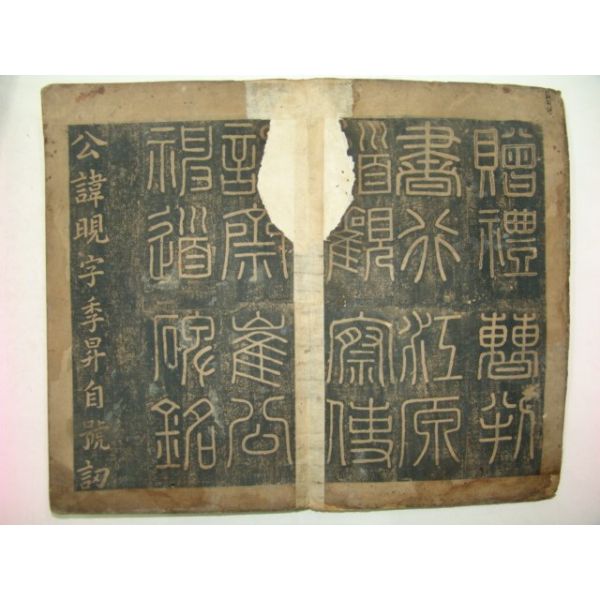 贈禮曹判
書行江原
道觀察使
訒齋崔公
神道碑銘
公諱晛字季昇自號訒